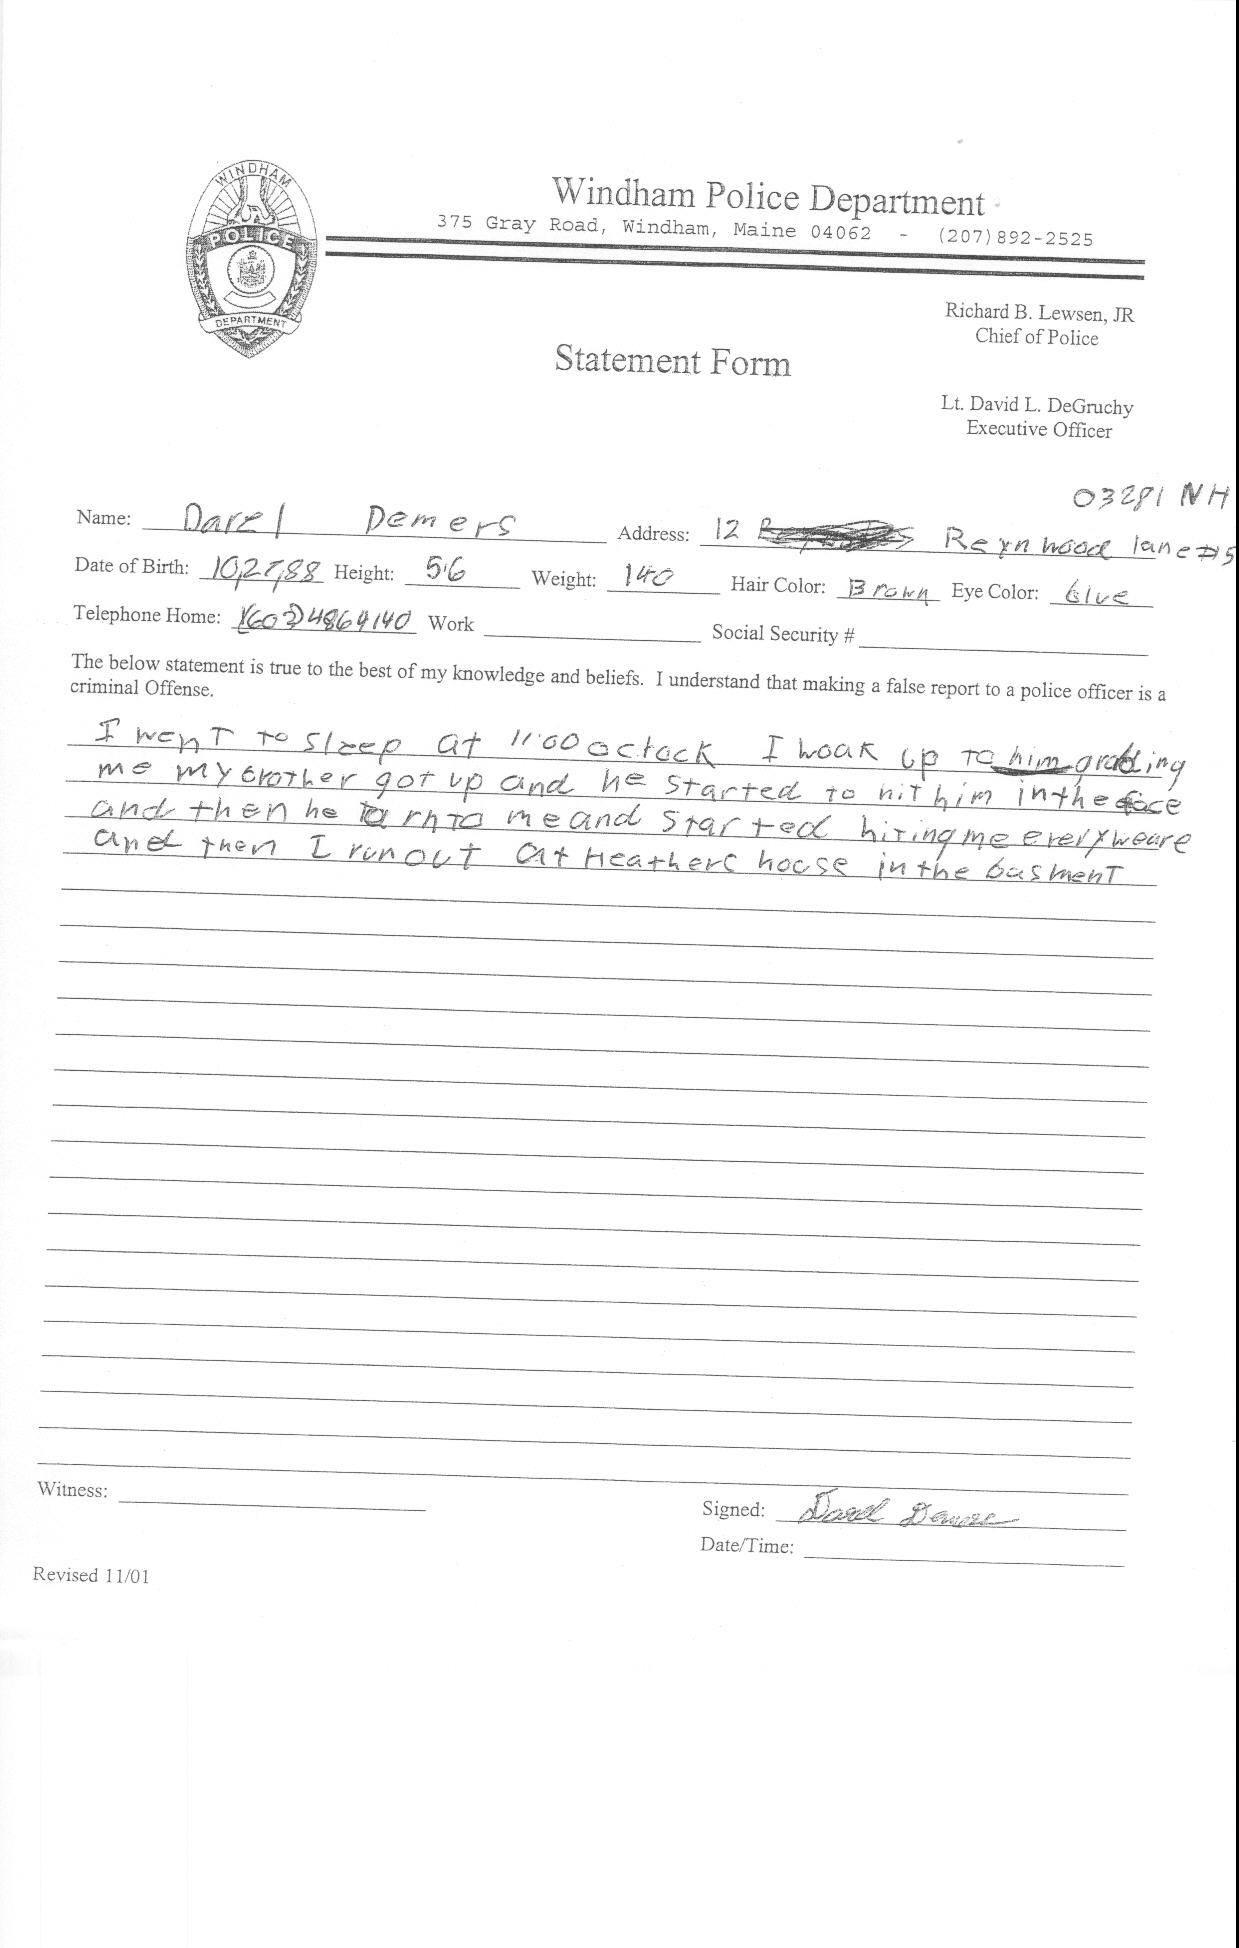 WINDHAM
POLICE
DEPARTMENT
Windham Police Department
375 Gray Road, Windham, Maine 04062 - (207)892-2525
Richard B. Lewsen, JR
Chief of Police
Statement Form
Lt. David L. DeGruchy
Executive Officer
03281 NH
Name: Darel Demers Address: 12 Reynwood lane #5
Date of Birth: 10,27,88 Height: 5'6 Weight: 140 Hair Color: Brown Eye Color: blue
Telephone Home: Work Social Security #
The below statement is true to the best of my knowledge and beliefs. I understand that making a false report to a police officer is a
criminal Offense.
I went to sleep at 11:00 oclock I woak up to him grabbing
me my brother got up and he started to hit him in the face
and then he turn to me and started hiting me everyweare
and then I run out at Heathers house in the basment
Witness:
Signed: Darel Demers
Date/Time:
Revised 11/01